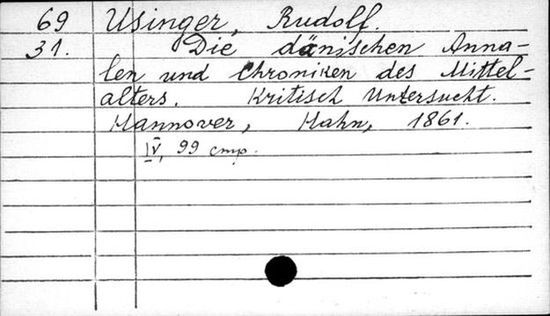 69 Usinger, Rudolf.
31. Die dänischen Anna-
len und Chroniken des Mittel-
alters. Kritisch Untersucht.
Hannover, Hahn, 1861.
IV, 99 стр.